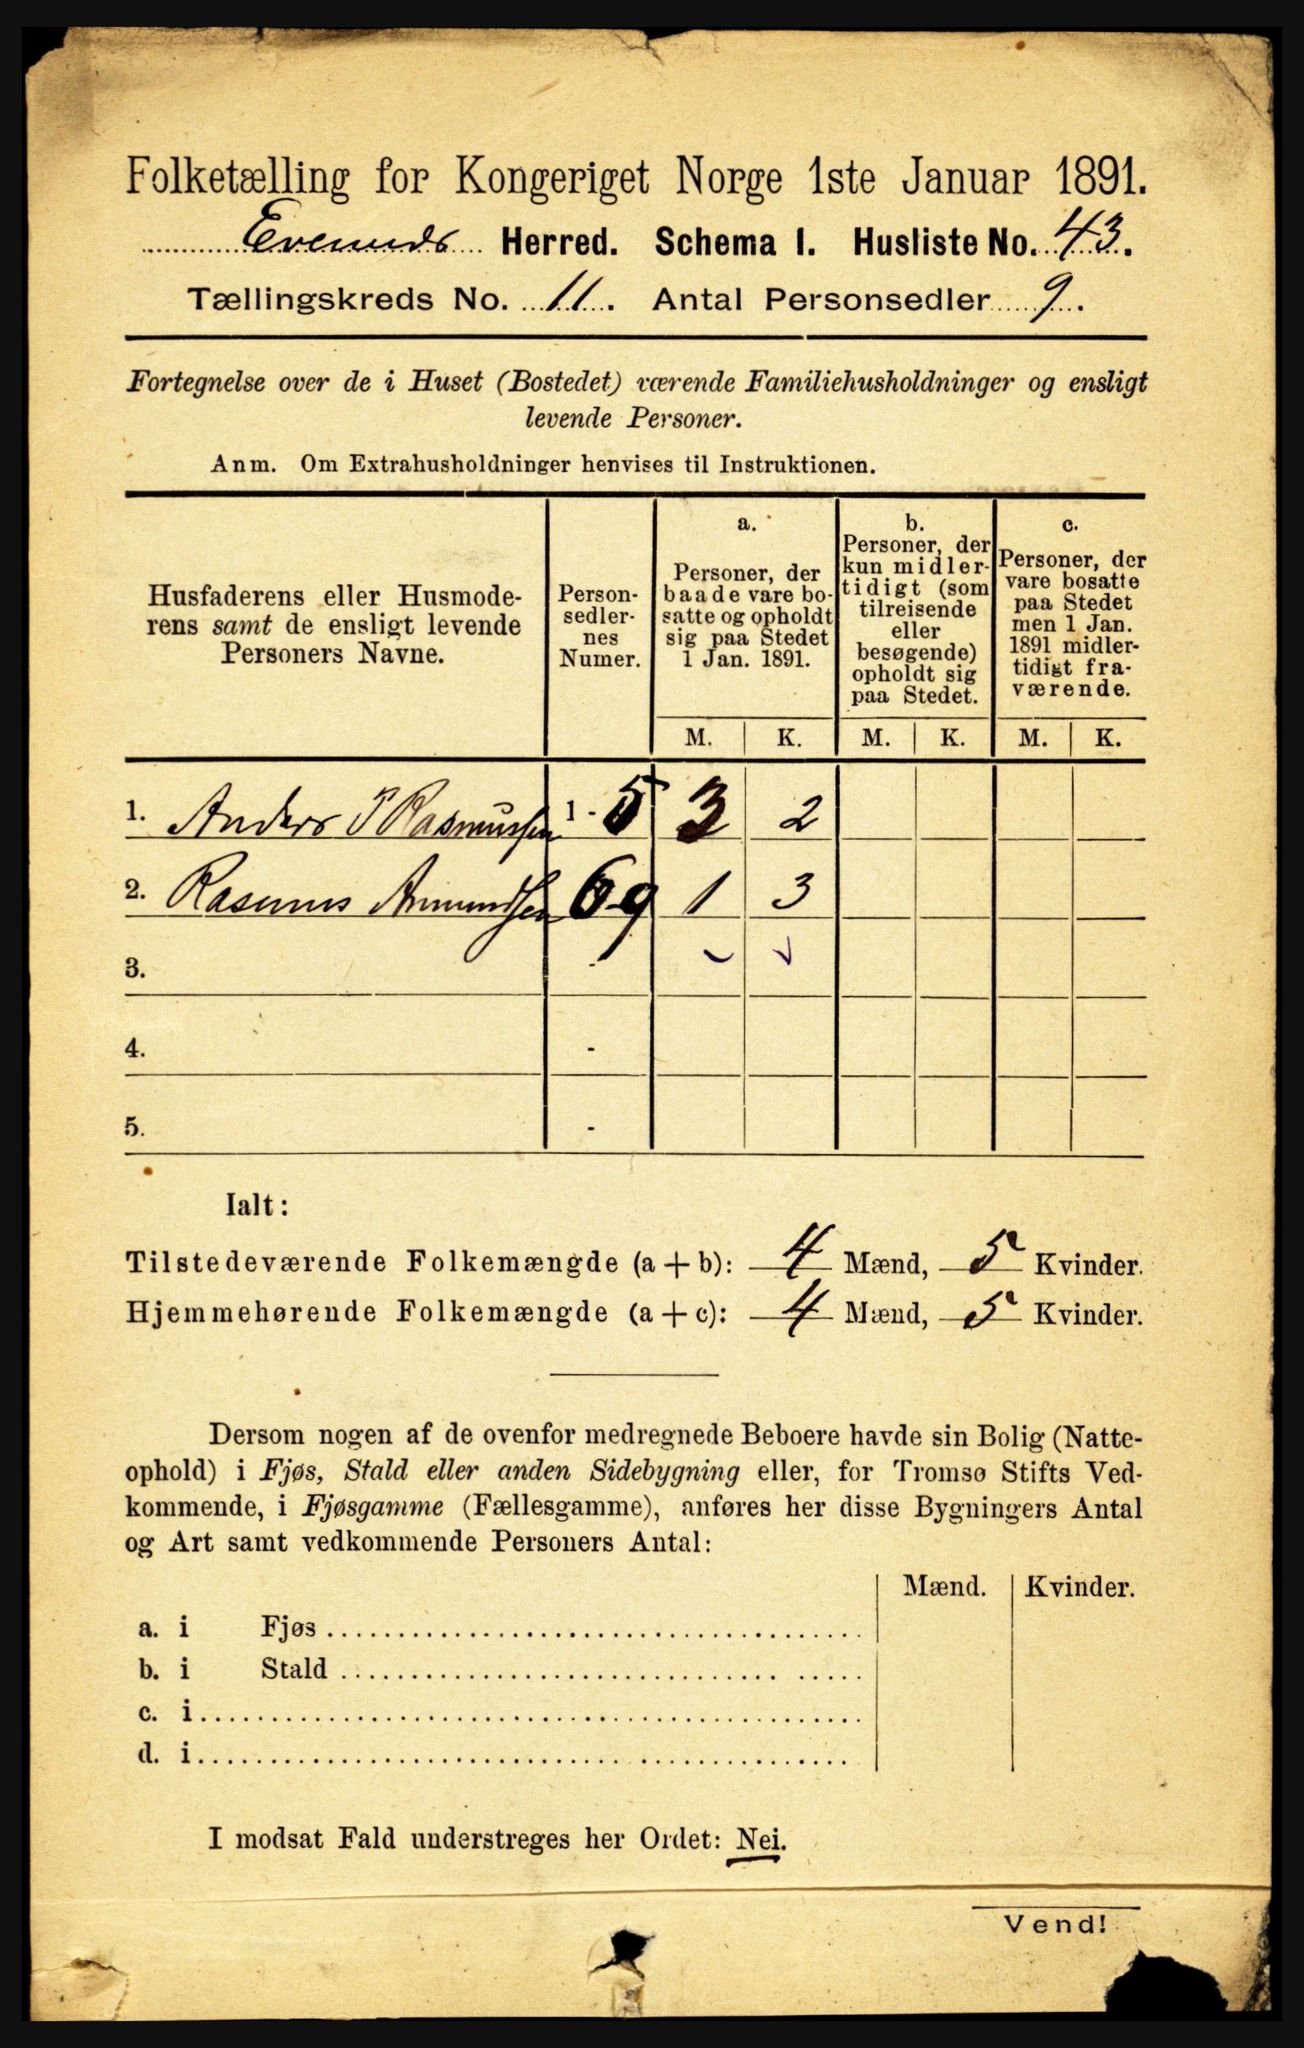 Folketælling for Kongeriget Norge 1ste Januar 1891.
Evenvids Herred. Schema I. Husliste No. 43.
Tællingskreds No. 11. Antal Personsedler 9.
Fortegnelse over de i Huset (Bostedet) værende Familiehusholdninger og ensligt
levende Personer.
Anm. Om Extrahusholdninger henvises til Instruktionen.
Husfaderens eller Husmode-
rens samt de ensligt levende
Personers Navne.
Person-
sedler-
nes
Numer.
a.
Personer, der
baade vare bo-
satte og opholdt
sig paa Stedet
1 Jan. 1891.
b.
Personer, der
kun midler-
tidigt (som
tilreisende
eller
besøgende)
opholdt sig
paa Stedet.
c.
Personer, der
vare bosatte
paa Stedet
men 1 Jan.
1891 midler-
tidigt fra-
værende.
M. K. M. K. M. K.
1. Anders P Rasmussen 1 - 5 3 2
2. Rasmus Amundsen 6-9 1 3
3. -
4. -
5. -
Ialt:
Tilstedeværende Folkemængde (a + b): 4 Mænd, 5 Kvinder.
Hjemmehørende Folkemængde (a + c): 4 Mænd, 5 Kvinder.
Dersom nogen af de ovenfor medregnede Beboere havde sin Bolig (Natte-
ophold) i Fjøs, Stald eller anden Sidebygning eller, for Tromsø Stifts Ved-
kommende, i Fjøsgamme (Fællesgamme), anføres her disse Bygningers Antal
og Art samt vedkommende Personers Antal:
Mænd. Kvinder.
a. i Fjøs
b. i Stald
c. i
d. i
I modsat Fald understreges her Ordet: Nei.
Vend!